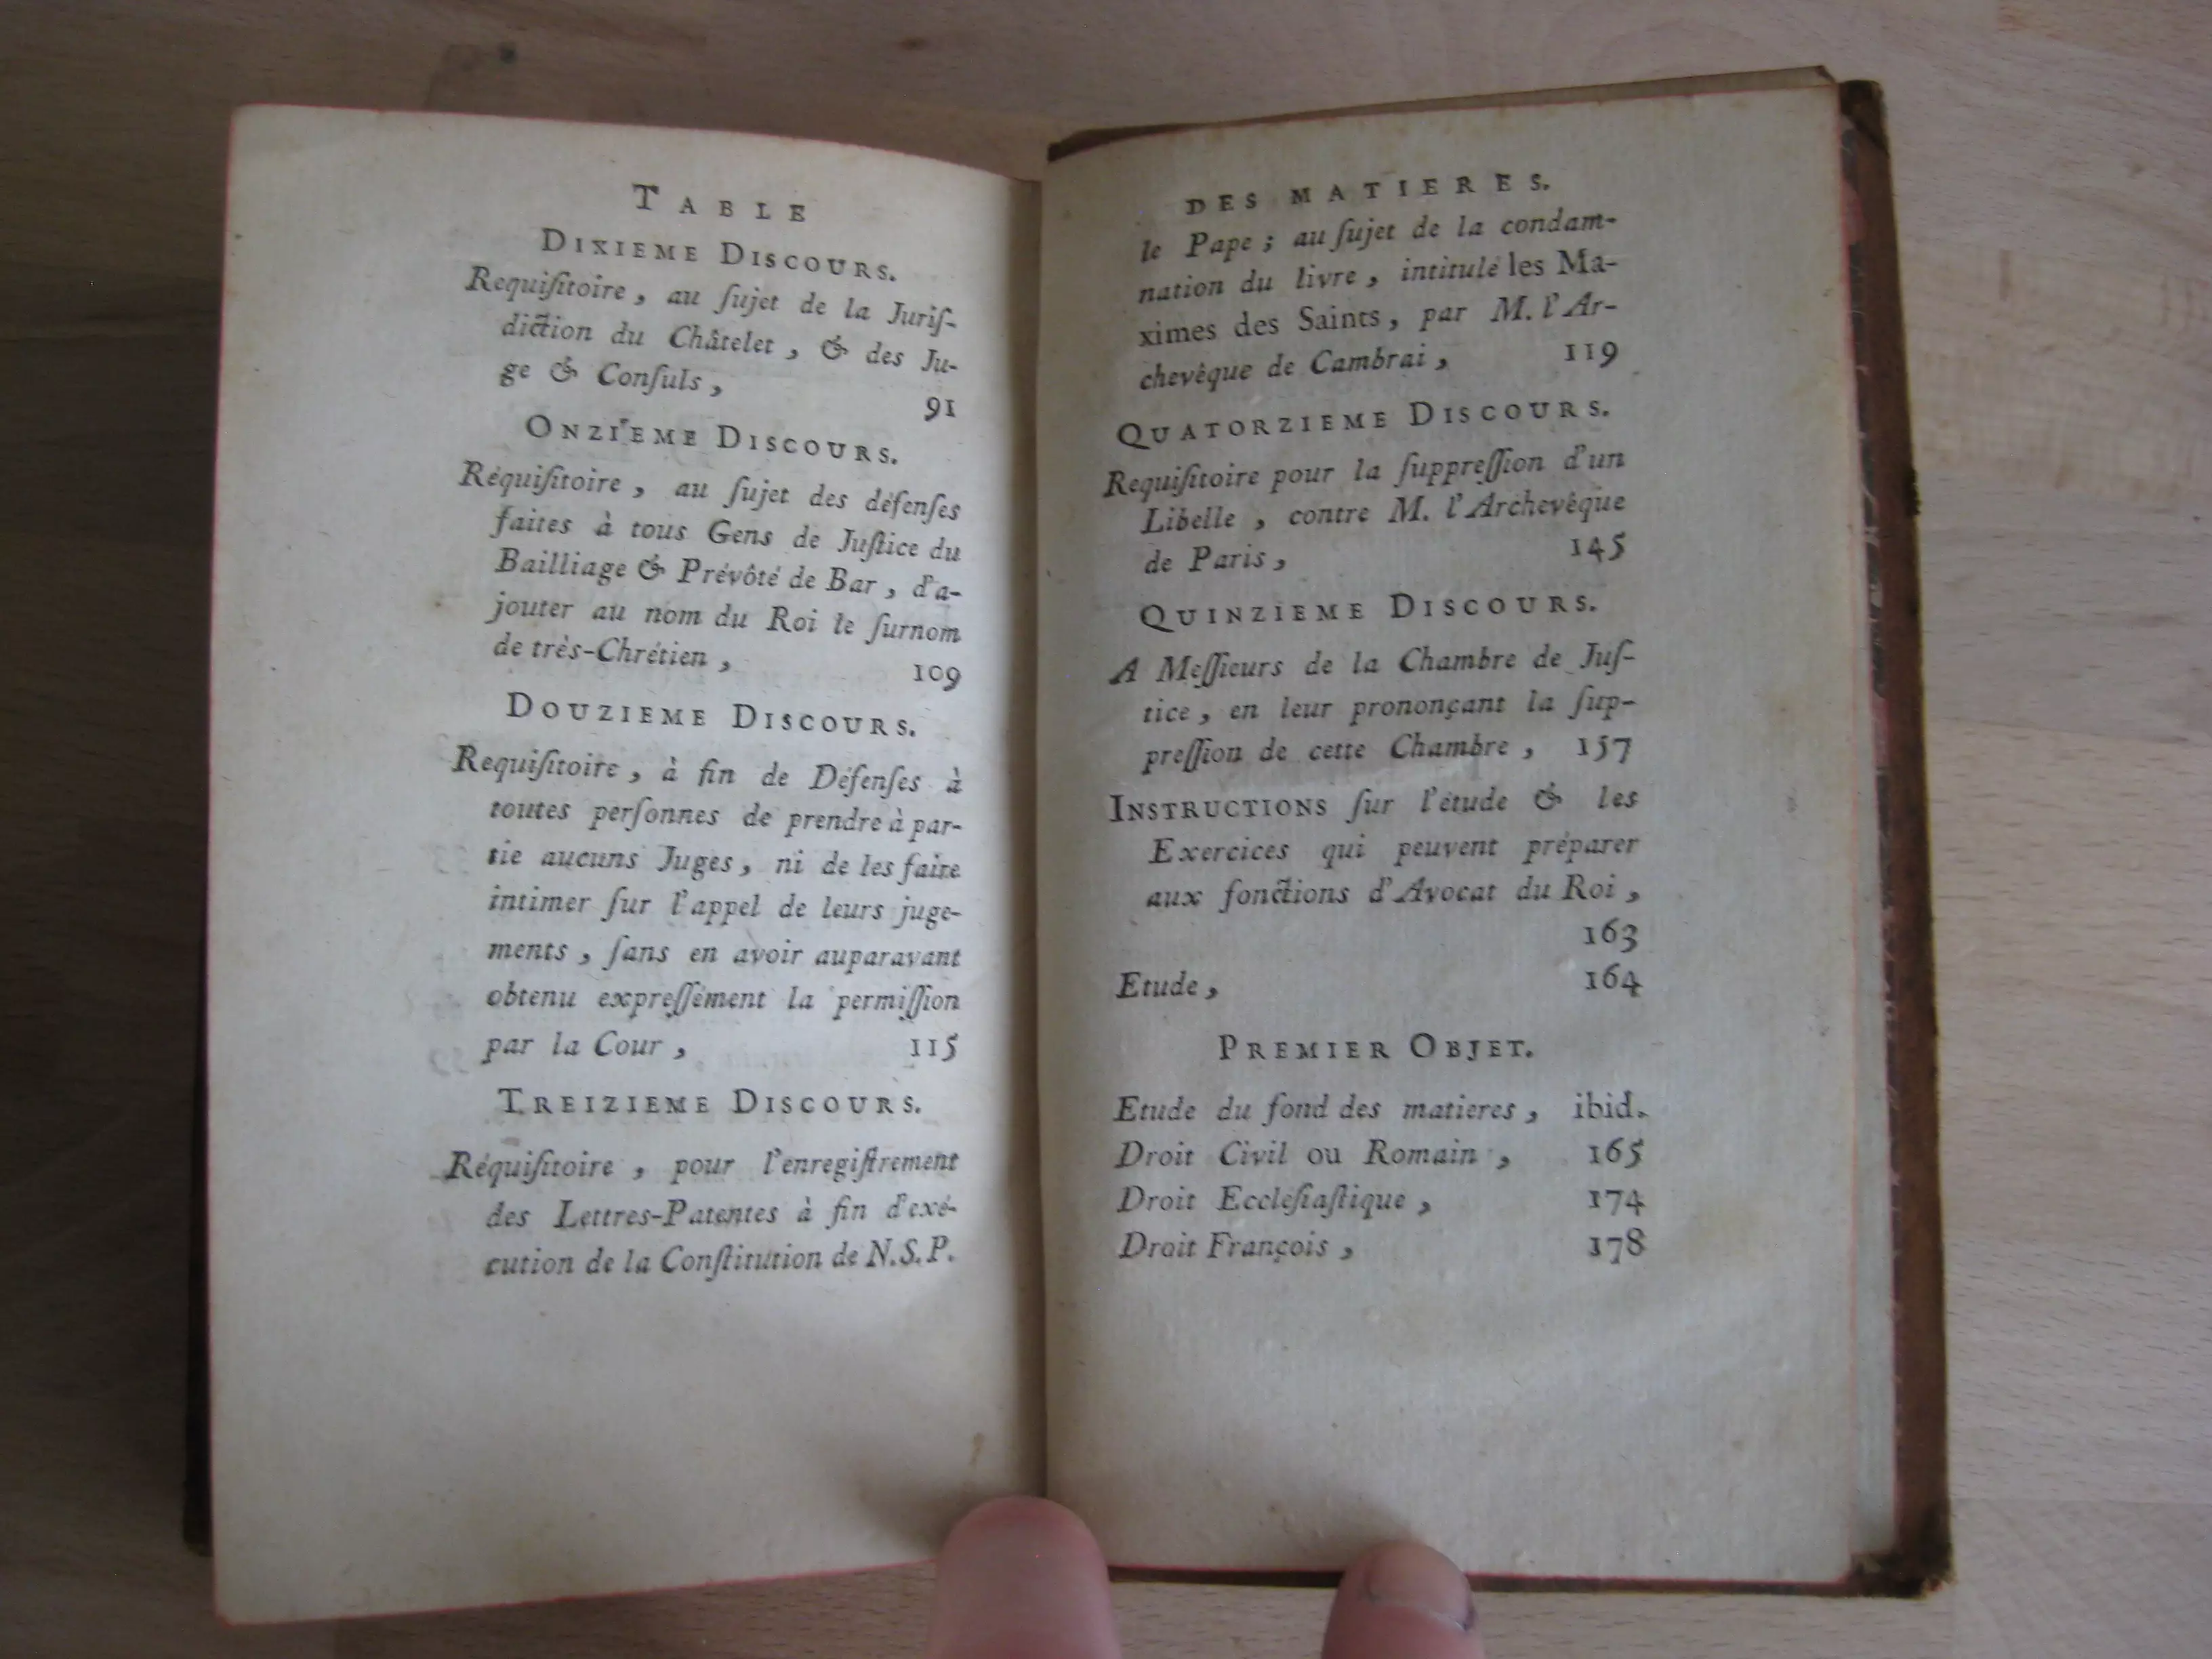 TABLE
DIXIEME DISCOURS.
Requiſitoire, au ſujet de la Juriſ-
diction du Châtelet, & des Ju-
ge & Conſuls,
91
ONZIEME DISCOURS.
Réquiſitoire, au ſujet des défenſes
faites à tous Gens de Juſtice du
Bailliage & Prévôté de Bar, d'a-
jouter au nom du Roi le ſurnom
de très-Chrétien, 109
DOUZIEME DISCOURS.
Requiſitoire, à fin de Défenſes à
toutes perſonnes de prendre à par-
tie aucuns Juges, ni de les faire
intimer ſur l'appel de leurs juge-
ments, ſans en avoir auparavant
obtenu expreſſément la permiſſion
par la Cour, 115
TREIZIEME DISCOURS.
Réquiſitoire, pour l'enregiſtrement
des Lettres-Patentes à fin d'exé-
cution de la Conſtitution de N.S.P.
DES MATIERES.
le Pape; au ſujet de la condam-
nation du livre, intitulé les Ma-
ximes des Saints, par M. l'Ar-
chevêque de Cambrai, 119
QUATORZIEME DISCOURS.
Requiſitoire pour la ſuppreſſion d'un
Libelle, contre M. l'Archevêque
de Paris, 145
QUINZIEME DISCOURS.
A Meſſieurs de la Chambre de Juſ-
tice, en leur prononçant la ſup-
preſſion de cette Chambre, 157
INSTRUCTIONS ſur l'étude & les
Exercices qui peuvent préparer
aux fonctions d'Avocat du Roi,
163
Etude, 164
PREMIER OBJET.
Etude du fond des matieres, ibid.
Droit Civil ou Romain, 165
Droit Eccleſiaſtique, 174
Droit François, 178